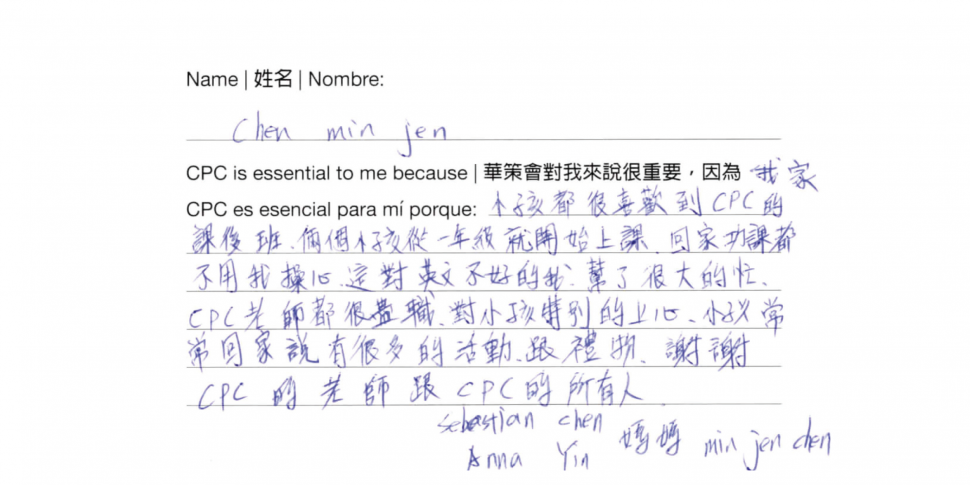 Name | 姓名 | Nombre:
Chen min jen
CPC is essential to me because | 華策會對我來說很重要，因為 我家
CPC es esencial para mí porque: 小孩都很喜歡到CPC的
課後班、倆個小孩從一年級就開始上課、回家功課都
不用我操心、這對英文不好的我、幫了很大的忙、
CPC老師都很盡職、對小孩特別的上心、小孩常
常回家說有很多的活動、跟禮物、謝謝
CPC的老師跟CPC的所有人
Sebastian chen
Anna Yin 媽媽 min jen chen